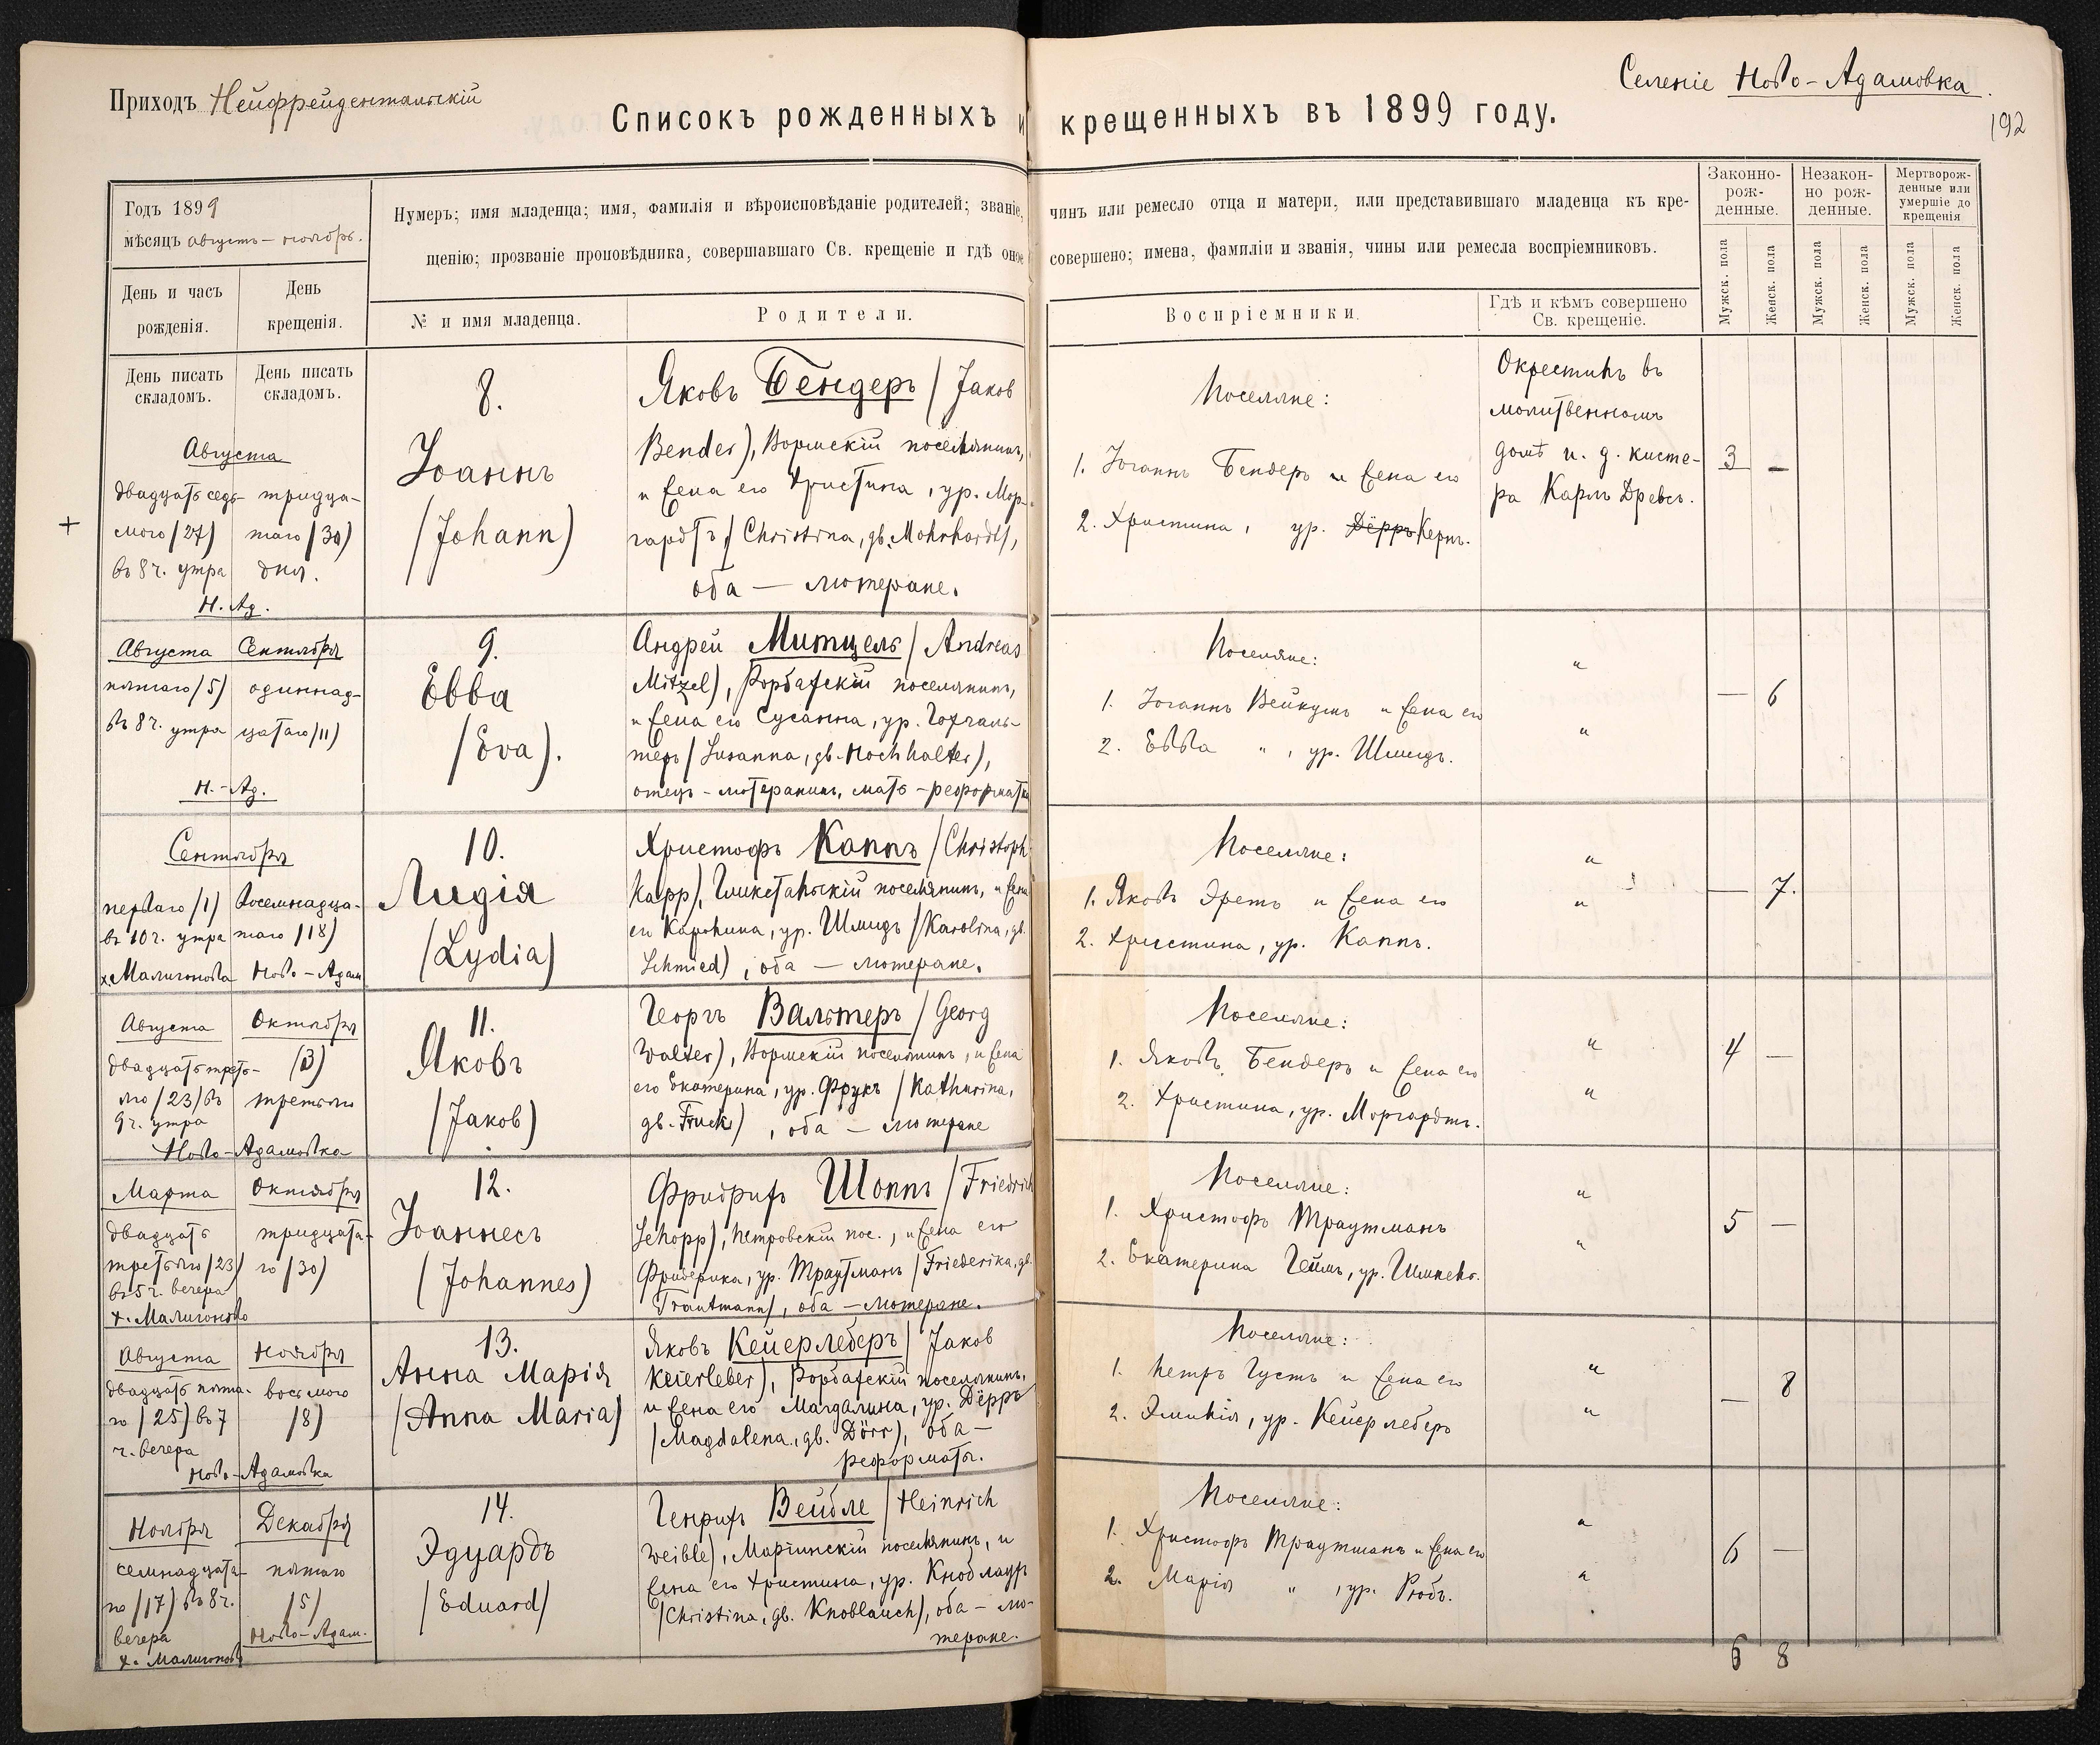 Приходъ Нейфрейдентальскій
Селеніе Ново-Адамовка.
192
Списокъ рожденныхъ и крещенныхъ въ 1899 году.
Годъ 1899
мѣсяцъ августъ – ноябрь.
Нумеръ; имя младенца; имя, фамилія и вѣроисповѣданіе родителей; званіе, чинъ или ремесло отца и матери, или представившаго младенца къ кре-
щенію; прозваніе проповѣдника, совершавшаго Св. крещеніе и гдѣ оное совершено; имена, фамиліи и званія, чины или ремесла воспріемниковъ.
Законно-
рож-
денные.
Незакон-
но рож-
денные.
Мертворож-
денные или
умершіе до
крещенія
День и часъ
рожденія.
День
крещенія.
№ и имя младенца.
Родители.
Воспріемники.
Гдѣ и кѣмъ совершено
Св. крещеніе.
Мужск. пола
Женск. пола
Мужск. пола
Женск. пола
Мужск. пола
Женск. пола
День писать
складомъ.
День писать
складомъ.
+
Августа
двадцать седь-
мого (27)
въ 8 ч. утра
тридца-
таго (30)
дня.
Н. Ад.
8.
Іоаннъ
(Johann)
Яковъ Бендеръ (Jakob
Bender), Вормскій поселянинъ,
и жена его Христина, ур. Мор-
гардтъ (Christina, gb. Mohrhardt),
оба — лютеране.
Поселяне:
1. Іоганнъ Бендеръ и жена его
2. Христина, ур. Дёрръ Кернъ.
Окрестилъ въ
молитвенномъ
домѣ и. д. кисте-
ра Карлъ Древсъ.
3 –
Августа
пятаго (5)
въ 8 ч. утра
Сентября
одиннад-
цатаго (11)
Н.-Ад.
9.
Евва
(Eva).
Андрей Митцель (Andreas
Mitzel), Рорбахскій поселянинъ,
и жена его Сусанна, ур. Гохгаль-
теръ (Susanna, gb. Hochhalter),
отецъ - лютеранинъ, мать - реформатка
Поселяне:
1. Іоганнъ Вейкумъ и жена его
2. Евва " , ур. Шмидъ.
"
"
— 6
Сентября
перваго (1)
въ 10 ч. утра
х. Малигонова
восемнадца-
таго (18)
Ново-Адам.
10.
Лидія
(Lydia)
Христофъ Каппъ (Christoph
Kapp), Гликстальскій поселянинъ, и жена
его Каролина, ур. Шмидъ (Karolina, gb.
Schmied), оба — лютеране.
Поселяне:
1. Яковъ Эретъ и жена его
2. Христина, ур. Каппъ.
"
"
— 7.
Августа
двадцать треть-
яго (23) въ
9 ч. утра
Октября
(3)
третьяго
Ново-Адамовка
11.
Яковъ
(Jakob)
Георгъ Вальтеръ (Georg
Walter), Вормскій поселянинъ, и жена
его Екатерина, ур. Фрукъ (Katharina,
gb. Fruck), оба — лютеране
Поселяне:
1. Яковъ Бендеръ и жена его
2. Христина, ур. Моргардтъ.
"
"
4 —
Марта
двадцать
третьяго (23)
въ 5 ч. вечера
х. Малигоново
Октября
тридцата-
го (30)
12.
Іоаннесъ
(Johannes)
Фридрихъ Шоппъ (Friedrich
Schopp), Петровскій пос., и жена его
Фридерика, ур. Траутманъ (Friederika, gb.
Trautmann), оба — лютеране.
Поселяне:
1. Христофъ Траутманъ
2. Екатерина Геймъ, ур.
"
"
5 —
Августа
двадцать пята-
го (25) въ 7
ч. вечера
Ноября
восьмого
(8)
Ново-Адамовка
13.
Анна Марія
(Anna Maria)
Яковъ Кейерлеберъ (Jakob
Keierleber), Рорбахскій поселянинъ,
и жена его Магдалина, ур. Дёрръ
(Magdalena, gb. Dörr), оба —
реформаты.
Поселяне:
1. Петръ Густъ и жена его
2. Эмилія, ур. Кейерлеберъ
"
"
— 8
Ноября
семнадцата-
го (17) въ 8 ч.
вечера
х. Малигоново
Декабря
пятаго
(5)
Ново-Адам.
14.
Эдуардъ
(Eduard)
Генрихъ Вейбле (Heinrich
Weible), Маріинскій поселянинъ, и
жена его Христина, ур. Кноблаухъ
(Christina, gb. Knoblauch), оба — лю-
теране.
Поселяне:
1. Христофъ Траутманъ и жена его
2. Марія " , ур. Робъ.
"
"
6 —
6 8